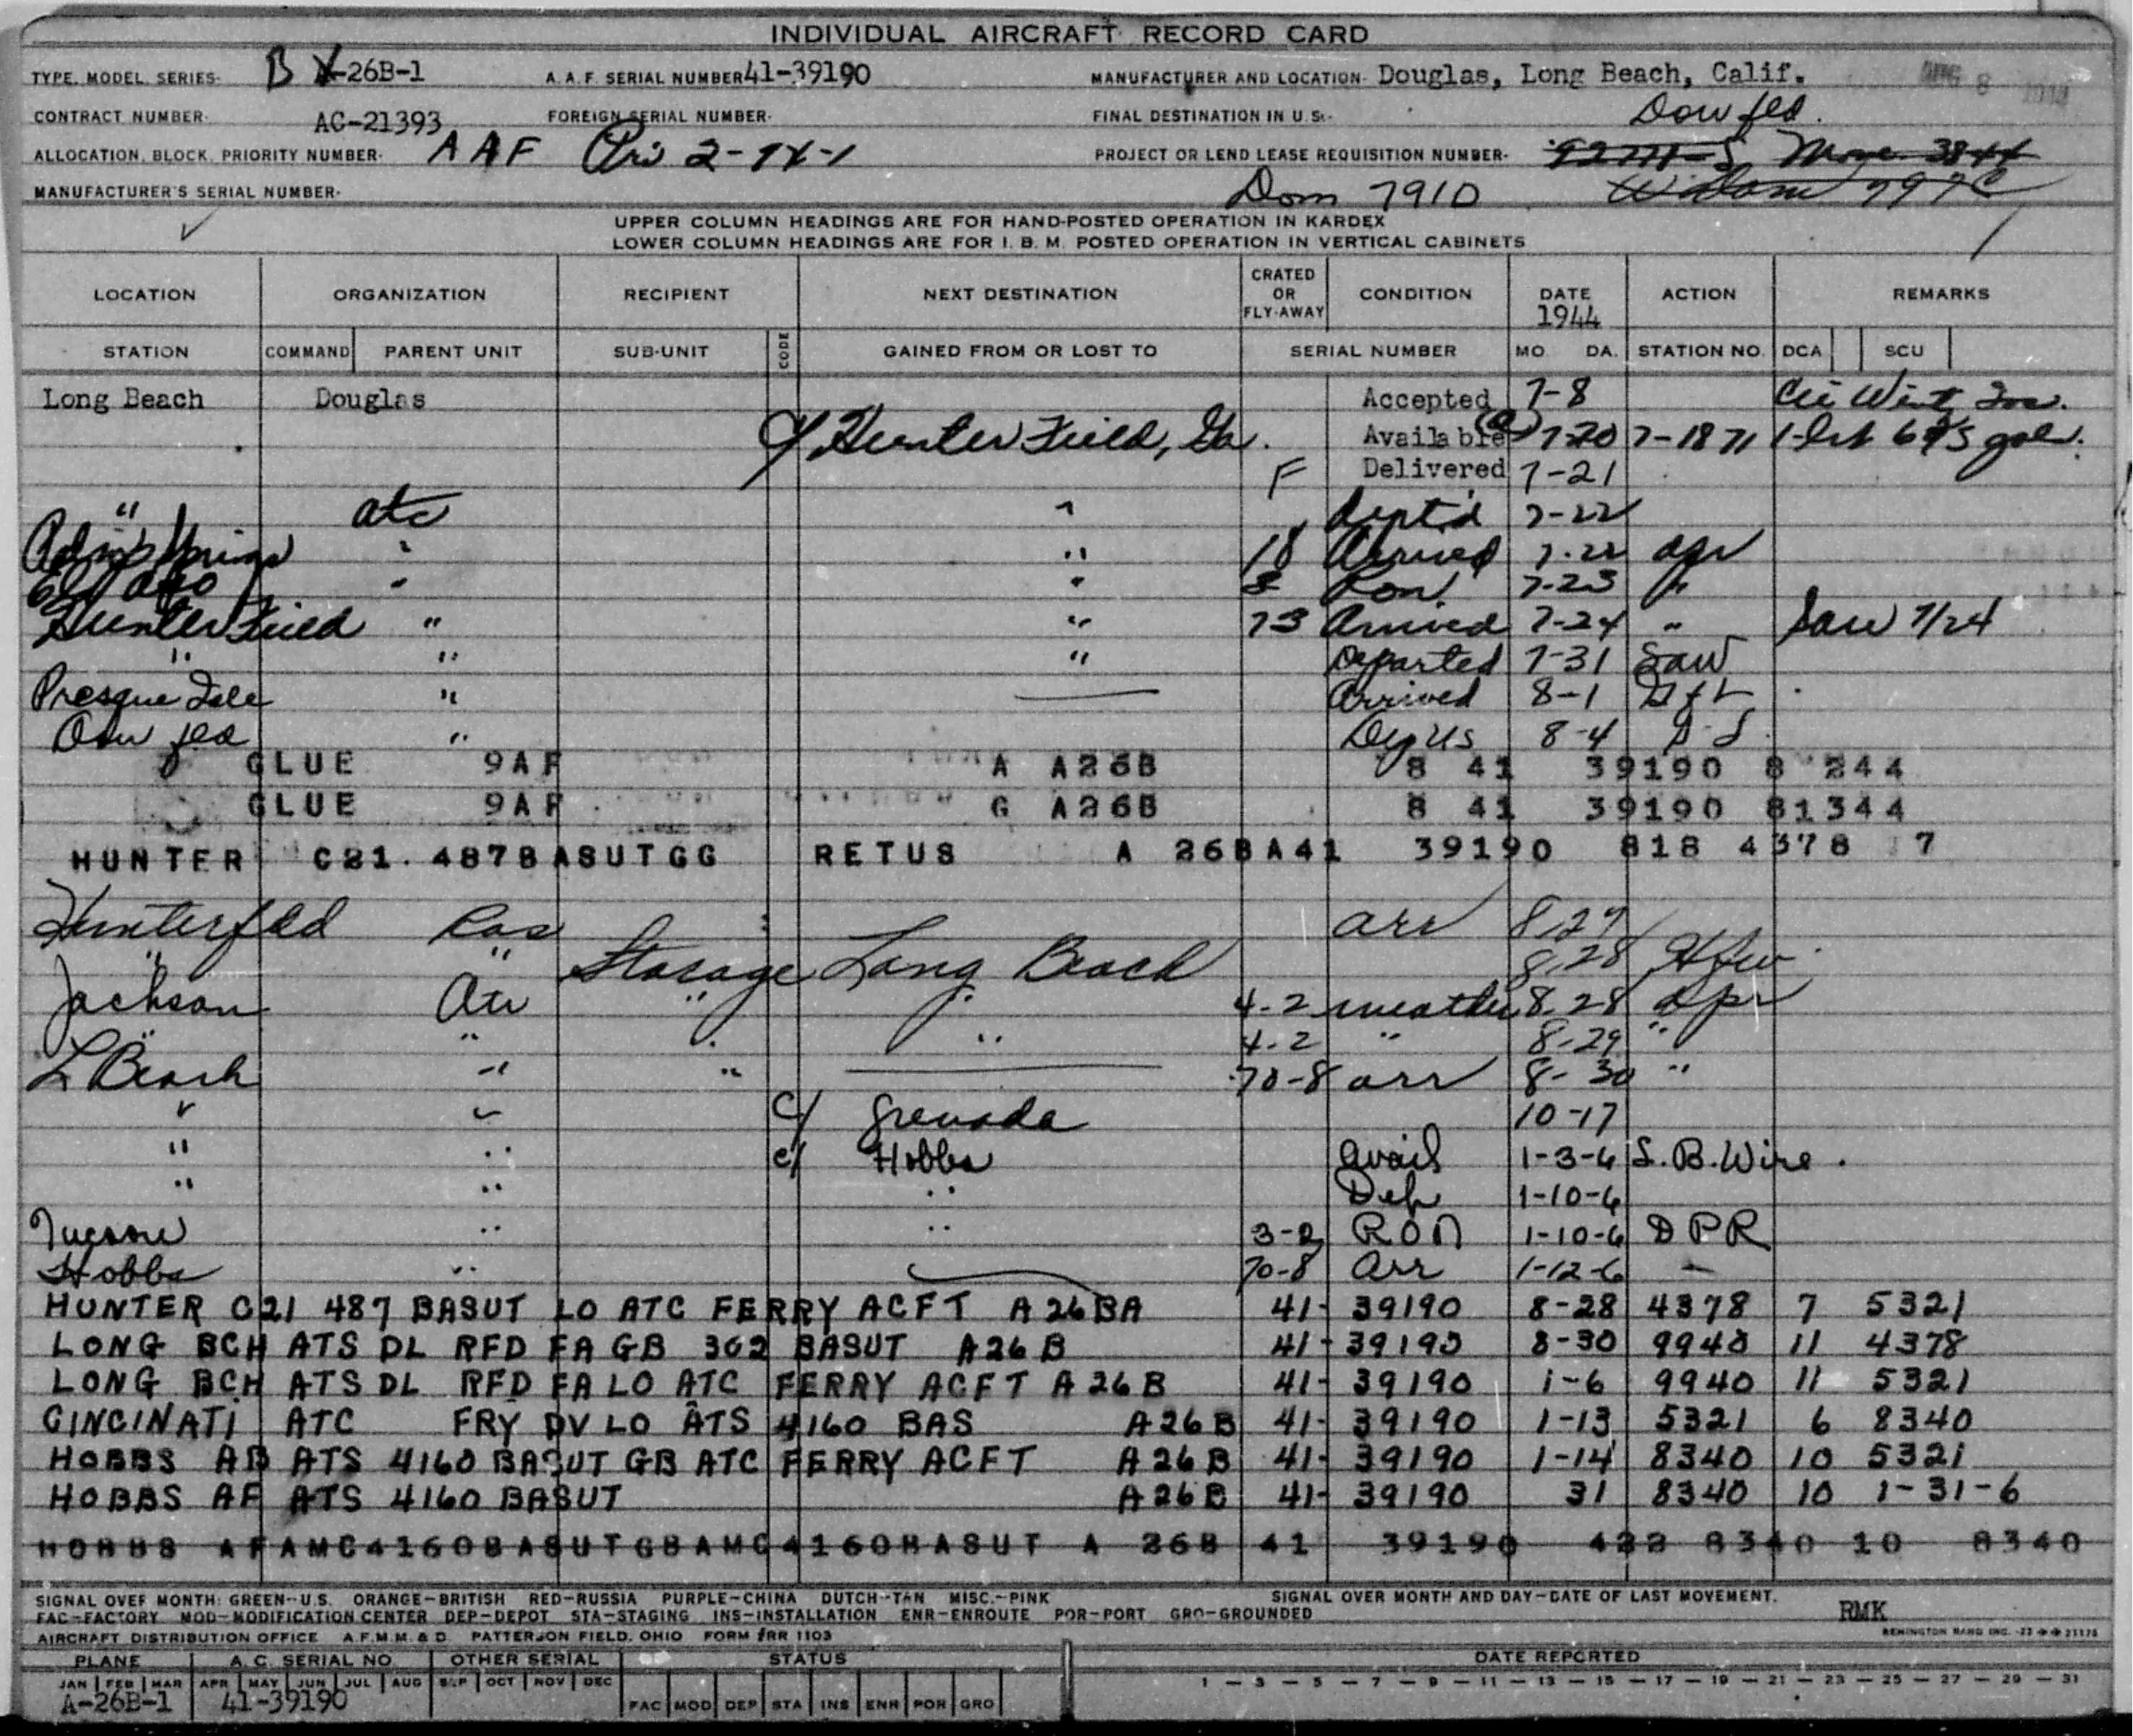 INDIVIDUAL AIRCRAFT RECORD CARD
TYPE, MODEL, SERIES- B -26B-1 A.A.F. SERIAL NUMBER 41-39190 MANUFACTURER AND LOCATION- Douglas, Long Beach, Calif.
CONTRACT NUMBER- AC-21393 FOREIGN SERIAL NUMBER- FINAL DESTINATION IN U.S.- Dow fld.
ALLOCATION, BLOCK, PRIORITY NUMBER- AAF Pri 2- PROJECT OR LEND LEASE REQUISITION NUMBER-
MANUFACTURER'S SERIAL NUMBER- Dom 7910
UPPER COLUMN HEADINGS ARE FOR HAND-POSTED OPERATION IN KARDEX
LOWER COLUMN HEADINGS ARE FOR I. B. M. POSTED OPERATION IN VERTICAL CABINETS
LOCATION ORGANIZATION RECIPIENT NEXT DESTINATION CRATED OR FLY-AWAY CONDITION DATE 1944 ACTION REMARKS
STATION COMMAND PARENT UNIT SUB-UNIT CODE GAINED FROM OR LOST TO SERIAL NUMBER MO DA. STATION NO. DCA SCU
Long Beach Douglas Accepted 7-8
Hunter Field, Ga. Available 7-20 7-18
F Delivered 7-21
" atc " dept'd 7-22
" " 18 Arrived 7-22 dpr
" " Ron 7-23 "
Hunter Field " " 73 Arrived 7-24 " Saw 7/24
" " " Departed 7-31 Saw
Presque Isle " Arrived 8-1
Dow fld " Dep US 8-4
GLUE 9AF A A26B 8 41 39190 8 244
GLUE 9AF G A26B 8 41 39190 81344
HUNTER C21. 487BASUTGG RETUS A 26BA41 39190 818 4378 7
Hunterfld arr 8.27
" " Storage Long Beach 8.28
Jackson " " 4-2 weather 8.28 dpr
" " " " 4-2 " 8-29 "
L Beach " " 70-8 arr 8-30 "
" " c/ Grenada 10-17
" " c/ Hobbs avail 1-3-6 L.B. Wire.
" " " Dep 1-10-6
Tucson " " 3-2 RON 1-10-6 DPR
Hobbs " 70-8 Arr 1-12-6 -
HUNTER C21 487 BASUT LO ATC FERRY ACFT A26BA 41- 39190 8-28 4378 7 5321
LONG BCH ATS DL RFD FA GB 362 BASUT A26B 41- 39190 8-30 9940 11 4378
LONG BCH ATS DL RFD FA LO ATC FERRY ACFT A26B 41- 39190 1-6 9940 11 5321
CINCINATI ATC FRY DV LO ATS 4160 BAS A26B 41- 39190 1-13 5321 6 8340
HOBBS AB ATS 4160 BASUT GB ATC FERRY ACFT A26B 41- 39190 1-14 8340 10 5321
HOBBS AF ATS 4160 BASUT A26B 41- 39190 31 8340 10 1-31-6
HOBBS AFAMC4160BASUTGBAMC4160BASUT A 26B 41 39190 422 8340 10 8340
SIGNAL OVER MONTH: GREEN--U.S. ORANGE-BRITISH RED-RUSSIA PURPLE-CHINA DUTCH--TAN MISC.-PINK SIGNAL OVER MONTH AND DAY-DATE OF LAST MOVEMENT.
FAC-FACTORY MOD-MODIFICATION CENTER DEP-DEPOT STA-STAGING INS-INSTALLATION ENR-ENROUTE POR-PORT GRO-GROUNDED RMK
AIRCRAFT DISTRIBUTION OFFICE A.F.M.M. & D. PATTERSON FIELD, OHIO FORM #RR 1103 REMINGTON RAND INC.
PLANE A.C. SERIAL NO. OTHER SERIAL STATUS DATE REPORTED
JAN FEB MAR APR MAY JUN JUL AUG SEP OCT NOV DEC 1 - 3 - 5 - 7 - 9 - 11 - 13 - 15 - 17 - 19 - 21 - 23 - 25 - 27 - 29 - 31
A-26B-1 41-39190 FAC MOD DEP STA INS ENR POR GRO